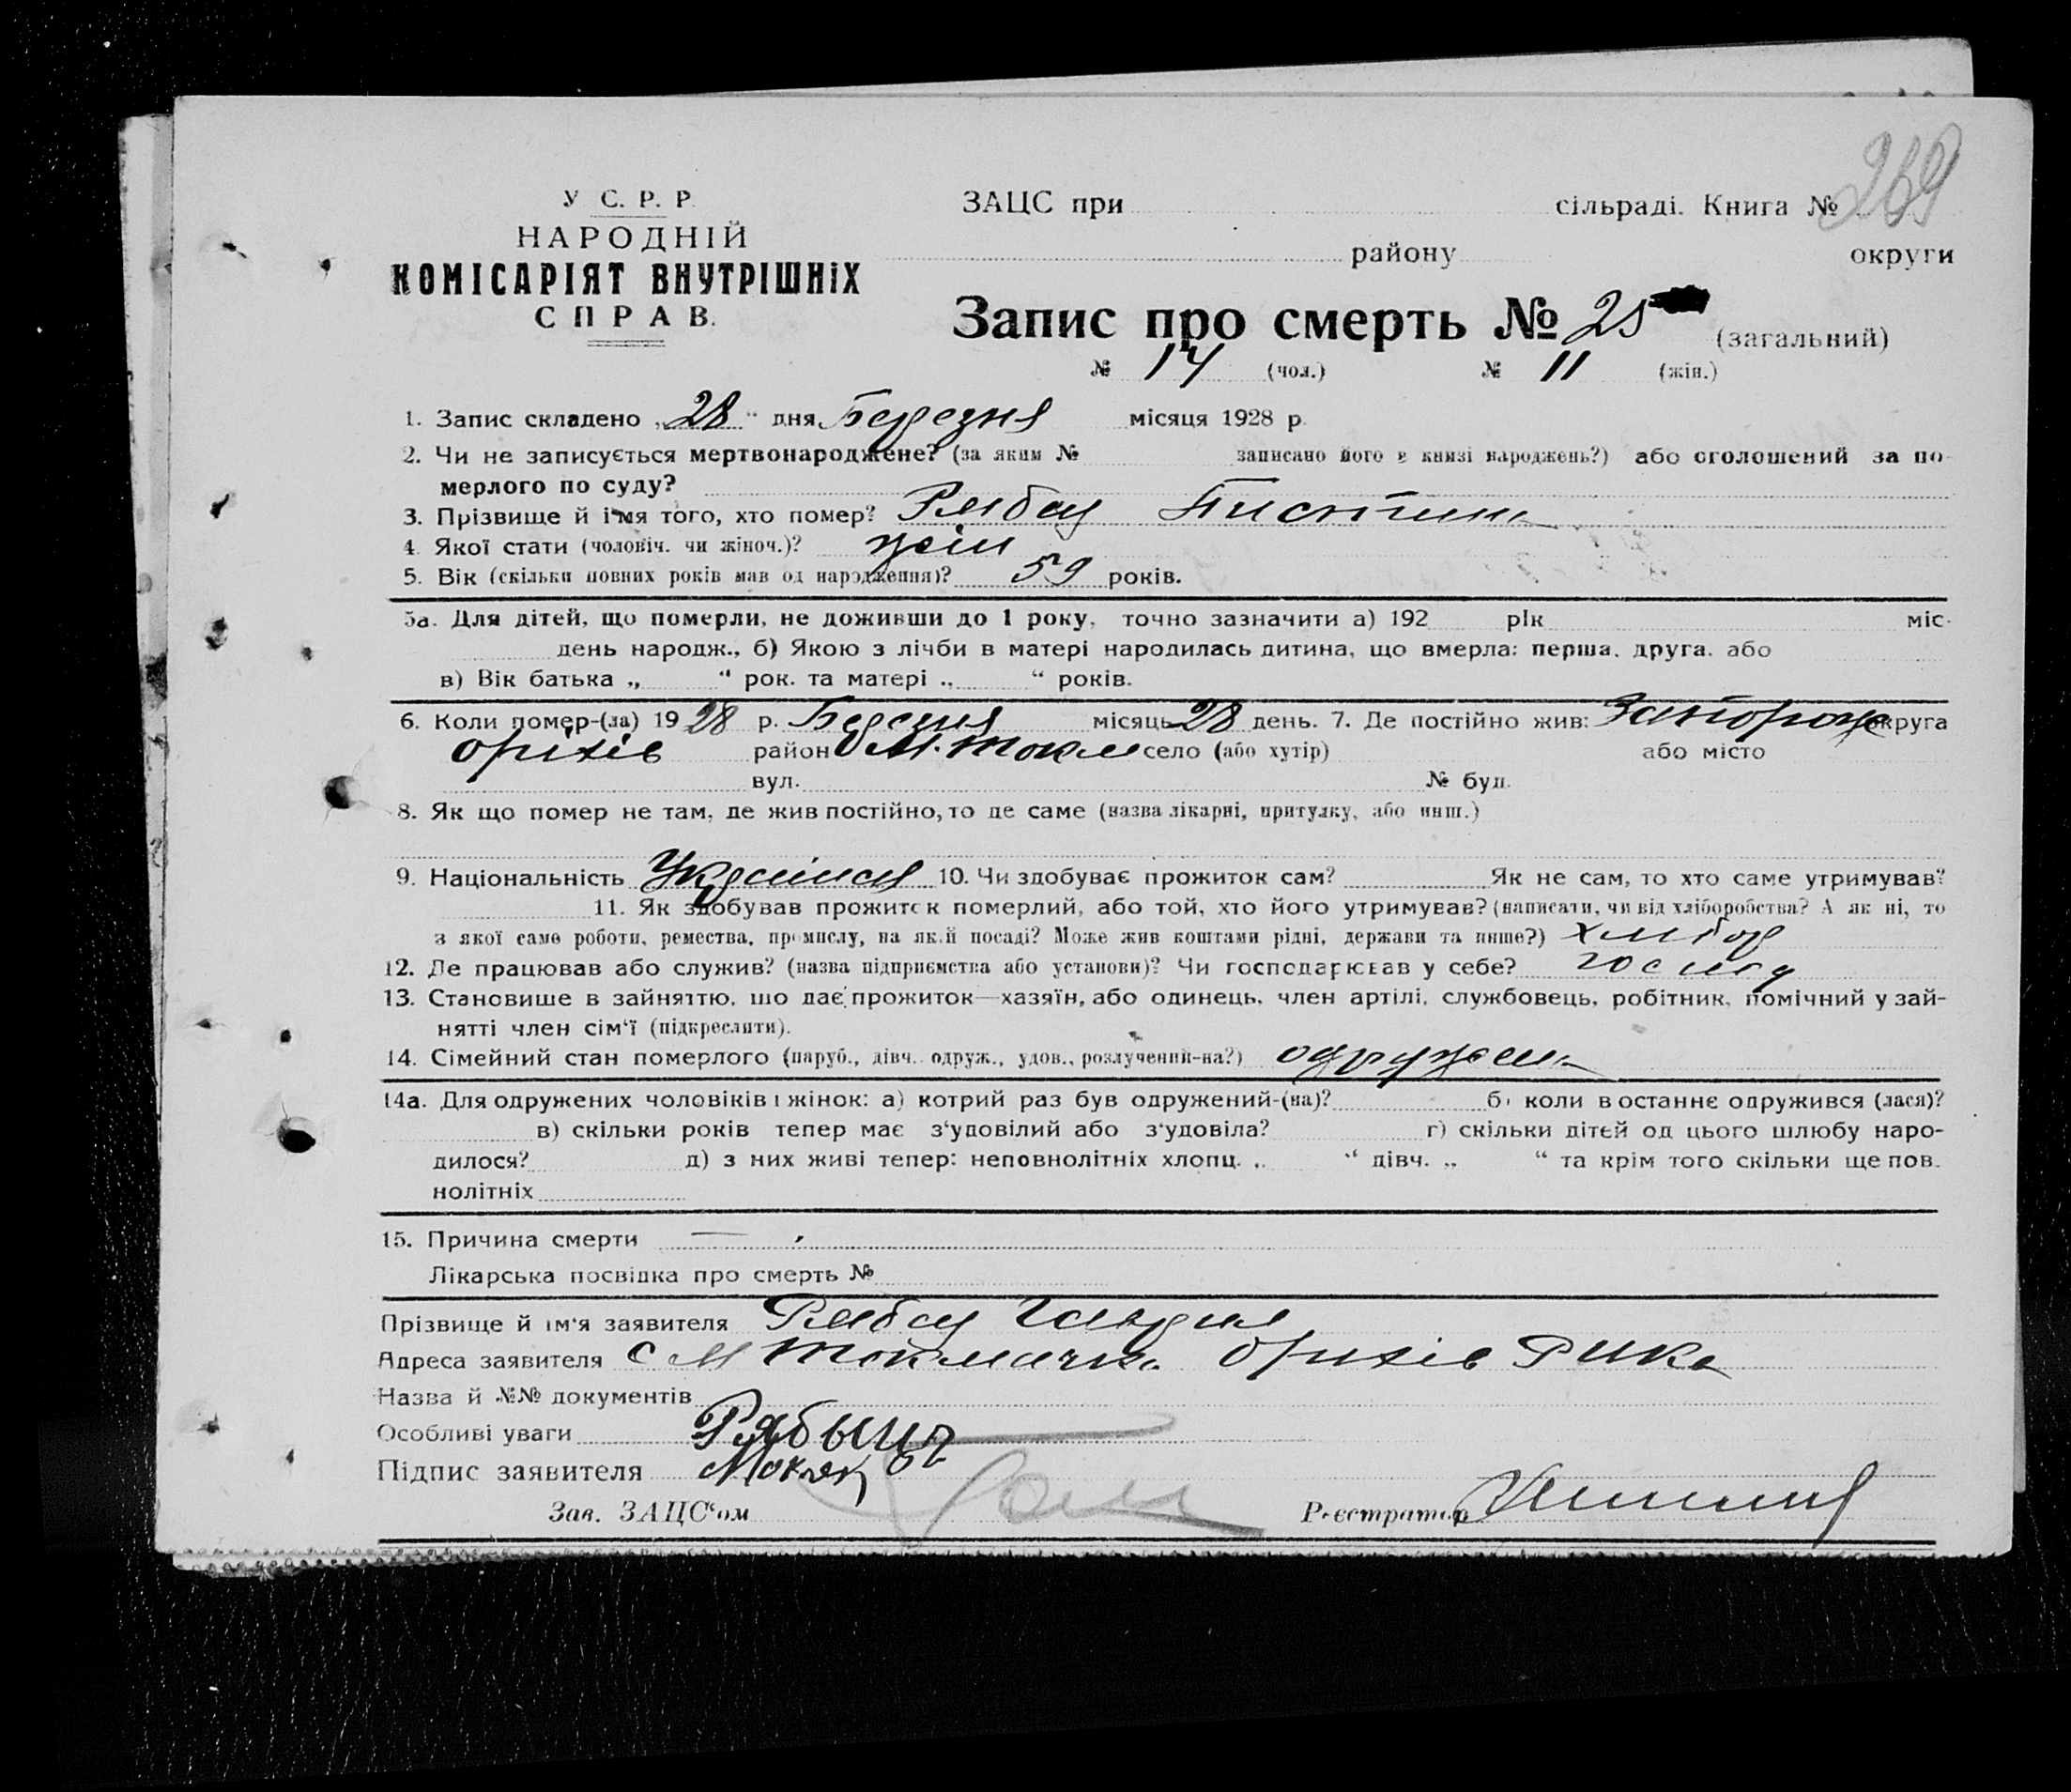 269
У С. Р. Р.
НАРОДНІЙ
КОМІСАРІЯТ ВНУТРІШНІХ
СПРАВ.
ЗАЦС при сільраді. Книга №
району округи
Запис про смерть № 25 (загальний)
№ 14 (чол.) № 11 (жін.)
1. Запис складено „28“ дня Березня місяця 1928 р.
2. Чи не записується мертвонароджене? (за яким № записано його в книзі народжень?) або оголошений за по-
мерлого по суду?
3. Прізвище й ім'я того, хто помер? Рябой Пистина
4. Якої стати (чоловіч. чи жіноч.)? жін
5. Вік (скільки повних років мав од народження)? 59 років.
5а. Для дітей, що померли, не доживши до 1 року, точно зазначити а) 192 рік міс.
день народж., б) Якою з лічби в матері народилась дитина, що вмерла: перша, друга, або
в) Вік батька „ “ рок. та матері „ “ років.
6. Коли помер-(ла) 1928 р. Березня місяць 28 день. 7. Де постійно жив: Запорожс округа
Оріхів район М. Токм село (або хутір) або місто
вул. № буд.
8. Як що помер не там, де жив постійно, то де саме (назва лікарні, притулку, або инш.)
9. Національність 10. Чи здобуває прожиток сам? Як не сам, то хто саме утримував?
11. Як здобував прожиток померлий, або той, хто його утримував? (написати, чи від хліборобства? А як ні, то
з якої саме роботи, ремества, промислу, на якій посаді? Може жив коштами рідні, держави та инше?) хлібор
12. Де працював або служив? (назва підприємства або установи)? Чи господарював у себе? господ
13. Становище в зайняттю, що дає прожиток—хазяїн, або одинець, член артілі, службовець, робітник, помічний у зай-
нятті член сім‘ї (підкреслити).
14. Сімейний стан померлого (паруб., дівч. одруж., удов., розлучений-на?) одружен
14а. Для одружених чоловіків і жінок: а) котрий раз був одружений-(на)? б) коли востаннє одружився (лася)?
в) скільки років тепер має з‘удовілий або з‘удовіла? г) скільки дітей од цього шлюбу наро-
дилося? д) з них живі тепер: неповнолітніх хлопц. „ “ дівч. „ “ та крім того скільки ще пов.
нолітніх
15. Причина смерти —
Лікарська посвідка про смерть №
Прізвище й ім‘я заявителя Рябой
Адреса заявителя с М Токмачка Оріхів Рика
Назва й №№ документів
Особливі уваги
Підпис заявителя
Зав. ЗАЦС‘ом
Реєстратор